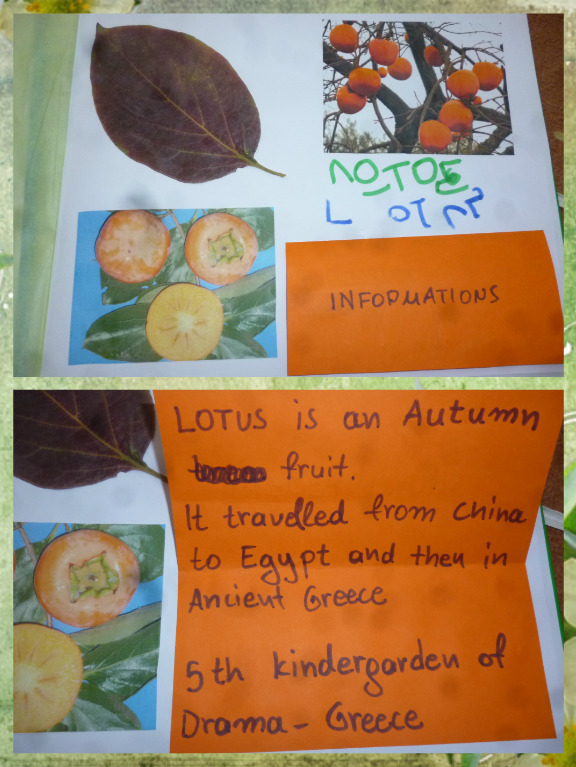 ΛΟΤΟΣ
LOTUS
INFORMATIONS
LOTUS is an Autumn
fruit.
It travelled from China
to Egypt and then in
Ancient Greece
5th kindergarden of
Drama - Greece